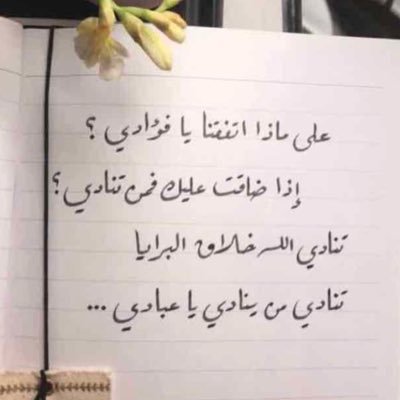 على ماذا اتفقنا يا فؤادي ؟
إذا ضاقت عليك فمن تنادي ؟
تنادي الله خلاق البرايا
تنادي من ينادي يا عبادي ...